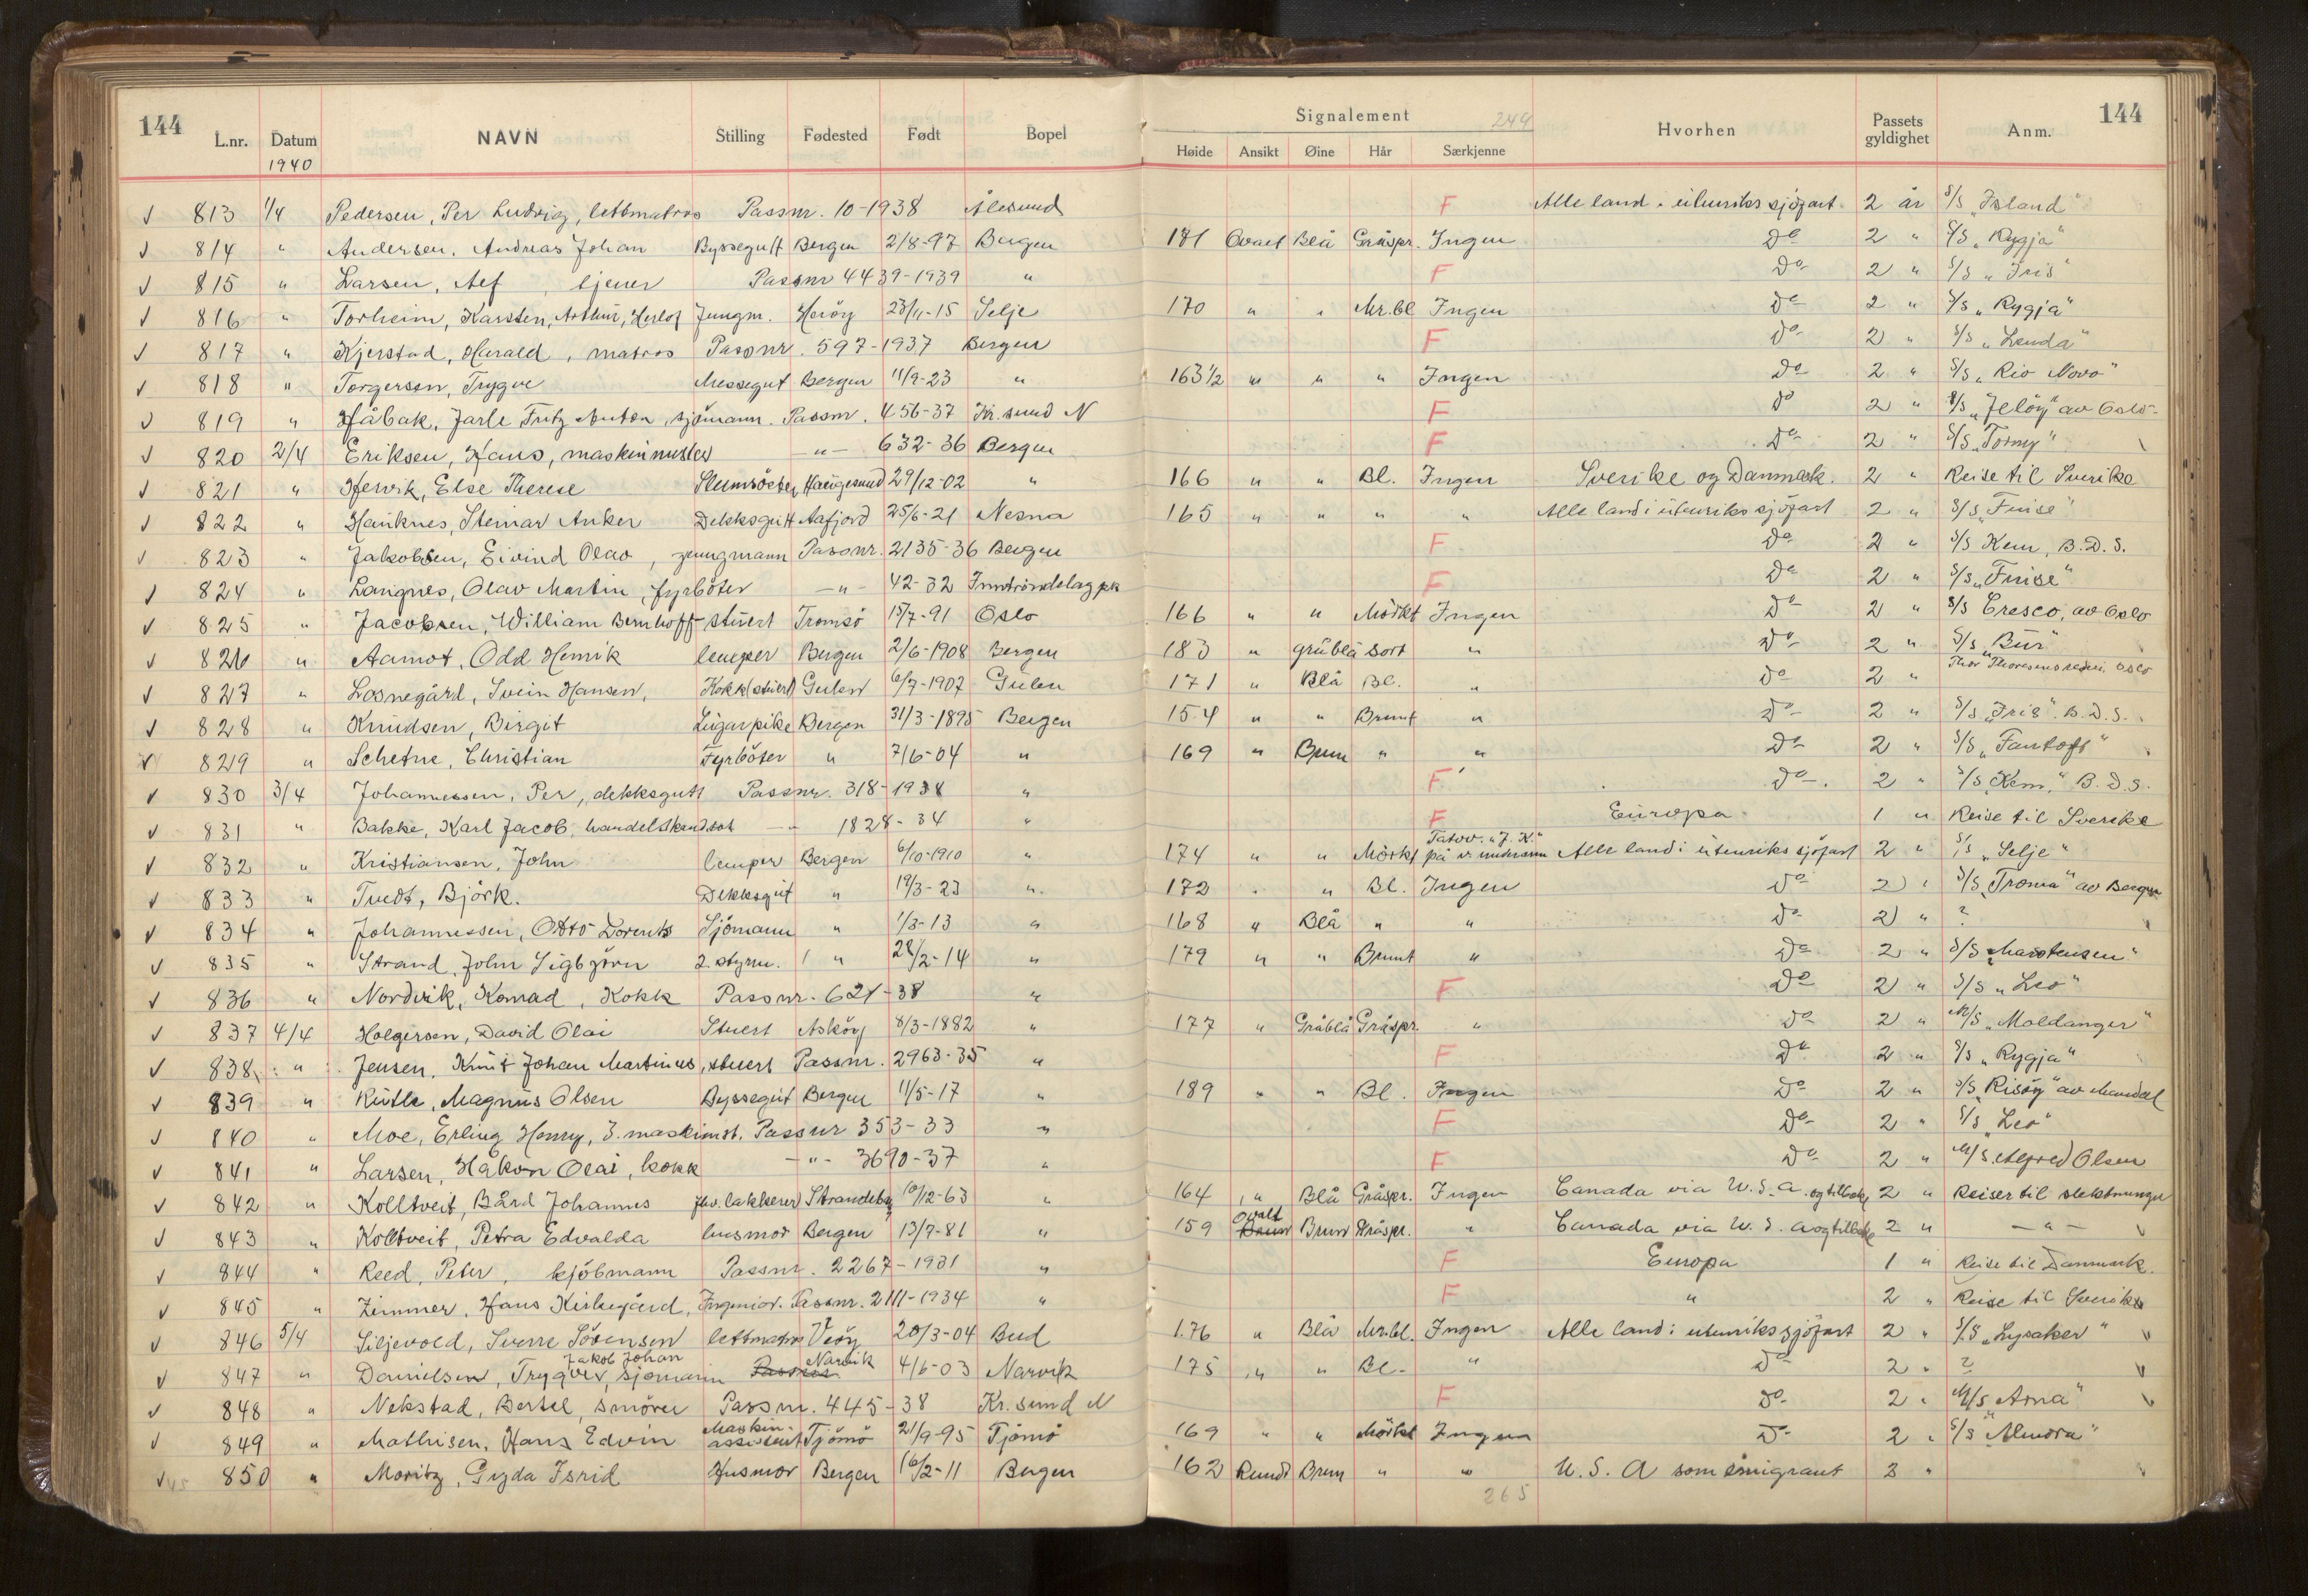 144 Signalement 249 144
L.nr. Datum NAVN Stilling Fødested Født Bopel Høide Ansikt Øine Hår Særkjenne Hvorhen Passets gyldighet Anm.
1940
√ 813 1/4 Pedersen, Per Ludvig, lettmatros Passnr. 10-1938 Ålesund F Alle land i utenriks sjöfart 2 år S/S „Island"
√ 814 " Andersen, Andreas Johan Byssegutt Bergen 2/8-97 Bergen 181 Ovalt Blå Gråspr. Ingen do 2 " S/S „Rygja"
√ 815 " Larsen, Alf, tjener Passnr 4439-1939 " F do 2 " S/S „Iris"
√ 816 " Torheim, Karsten, Arthur, Herlof Jungm. Heröy 23/11-15 Selje 170 " " Mr.bl Ingen do 2 " S/S „Rygja"
√ 817 " Kjerstad, Harald, matros Passnr. 597-1937 Bergen F do 2 " S/S „Lenda"
√ 818 " Torgersen, Trygve Messegut Bergen 11/9-23 " 163½ " " " Ingen do 2 " S/S „Rio Novo"
√ 819 " Håbak, Jarle Fritz Anton, sjömann. Passnr. 456-37 Kr.sund N F do 2 " S/S „Jelöy" av Oslo
√ 820 2/4 Eriksen, Hans, maskinmester -"- 632-36 Bergen F do 2 " S/S „Torny"
√ 821 " Hervik, Else Therese Haugesund 29/12-02 " 166 " " Bl. Ingen Sverike og Danmark. 2 " Reise til Sverike
√ 822 " Hauknes, Steinar Anker Dekksgutt Aafjord 25/6-21 Nesna 165 " " " " Alle land i utenriks sjöfart 2 " S/S „Frise"
√ 823 " Jakobsen, Eivind Olav, jungmann Passnr. 2135-36 Bergen F do 2 " S/S Kem, B.D.S.
√ 824 " Langnes, Olav Martin, fyrböter -"- 42-32 Inntröndelag pk F do 2 " S/S „Frise"
√ 825 " Jacobsen, William Bernhoff stuert Tromsö 15/7-91 Oslo 166 " " Mörkt Ingen do 2 " S/S Cresco, av Oslo
√ 826 " Aamot, Odd Henrik lemper Bergen 2/6-1908 Bergen 183 " gråblå Sort " do 2 " S/S „Bur"
√ 827 " Losnegård, Svein Hansen, Kokk (stuert) Gulen 6/7-1907 Gulen 171 " Blå Bl. " do 2 " Thor Thoresens rederi, Oslo
√ 828 " Knudsen, Birgit Lugarpike Bergen 31/3-1895 Bergen 154 " " Brunt " do 2 " S/S „Iris". B.D.S.
√ 829 " Schetne, Christian Fyrböter " 7/6-04 " 169 " Brun " " do 2 " S/S „Fantoft"
√ 830 3/4 Johannessen, Per, dekksgutt Passnr. 318-1938 " F do. 2 " S/S „Kem," B.D.S.
√ 831 " Bakke, Karl Jacob, handelskand.sok -"- 1828-34 " F Europa 1 " Reise til Sverike
√ 832 " Kristiansen, John lemper Bergen 6/10-1910 " 174 " " Mörkt Tatov. „J.K." på v. underarm Alle land i utenriks sjöfart 2 " S/S „Selje"
√ 833 " Tvedt, Björk. Dekksgut " 19/3-23 " 172 " " Bl. Ingen do 2 " S/S „Troma" av Bergen
√ 834 " Johannessen, Otto Lorents Sjömann " 1/3-13 " 168 " Blå " " do 2 " ?
√ 835 " Strand, John Sigbjörn 2. styrm. " 28/2-14 " 179 " " Brunt " do 2 " S/S „Marstensen"
√ 836 " Nordvik, Konrad, Kokk Passnr. 621-38 " F do 2 " S/S „Leo"
√ 837 4/4 Holgersen, David Olai Stuert Asköy 8/3-1882 " 177 " Gråblå Gråspr. " do 2 " M/S „Moldanger"
√ 838 " Jensen, Knut Johan Martinus, stuert Passnr. 2963-35 " F do 2 " S/S „Rygja"
√ 839 " Rutle, Magnus Olsen Byssegut Bergen 11/5-17 " 189 " " Bl. Ingen do 2 " S/S „Risöy" av Mandal
√ 840 " Moe, Erling Henry, 3. maskinist. Passnr 353-33 " F do 2 " S/S „Leo"
√ 841 " Larsen, Håkon Olai, kokk -"- 3690-37 " F do 2 " M/S. Alfred Olsen
√ 842 " Kolltveit, Bård Johannes fhv. lakkerer Strandeba 10/12-63 " 164 " Blå Gråspr. Ingen Canada via U.S.A. og tilbake 2 " Reiser til slektninger
√ 843 " Kolltveit, Petra Edvalda husmor Bergen 13/7-81 " 159 Ovalt Brun Brun Gråspr. " Canada via U.S.A og tilbake 2 " -"-
√ 844 " Reed, Peter, kjöbmann Passnr. 2267-1931 " F Europa 1 " Reise til Danmark.
√ 845 " Zimmer, Hans Kirkegård, Ingeniör. Passnr. 2111-1934 " F " 2 " Reise til Sverike
√ 846 5/4 Siljevold, Sverre Sörensen lettmatros Veöy 20/3-04 Bud 176 " Blå Mr.bl. Ingen Alle land i utenriks sjöfart 2 " S/S „Lysaker"
√ 847 " Danielsen, Trygve Jakob Johan, sjömann Passnr Narvik 4/6-03 Narvik 175 " " Bl. " do 2 " ?
√ 848 " Nekstad, Bertel, smörer Passnr. 445-38 Kr.sund N F do 2 " M/S „Arna"
√ 849 " Mathisen, Hans Edvin Maskin-assistent Tjömö 21/9-95 Tjömö 169 " " Mörkt Ingen do 2 " S/S „Almora"
√ 850 " Moritz, Gyda Isrid Husmor Bergen 16/2-11 Bergen 162 Rundt Brun " " U.S.A som emigrant 3 "
265